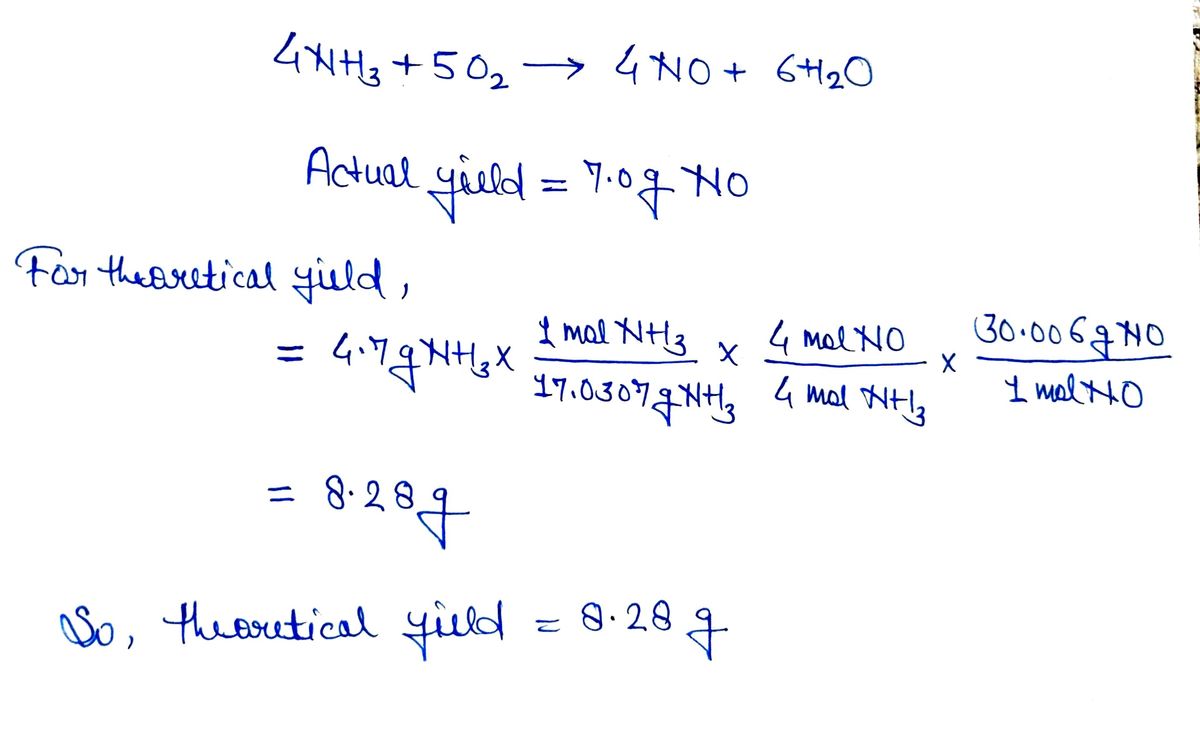 4NH₃ + 5O₂ → 4NO + 6H₂O
Actual yield = 7.0g NO
For theoretical yield,
= 4.7g NH₃ x 1 mol NH₃ / 17.0307g NH₃ x 4 mol NO / 4 mol NH₃ x 30.006g NO / 1 mol NO
= 8.28g
So, theoretical yield = 8.28 g